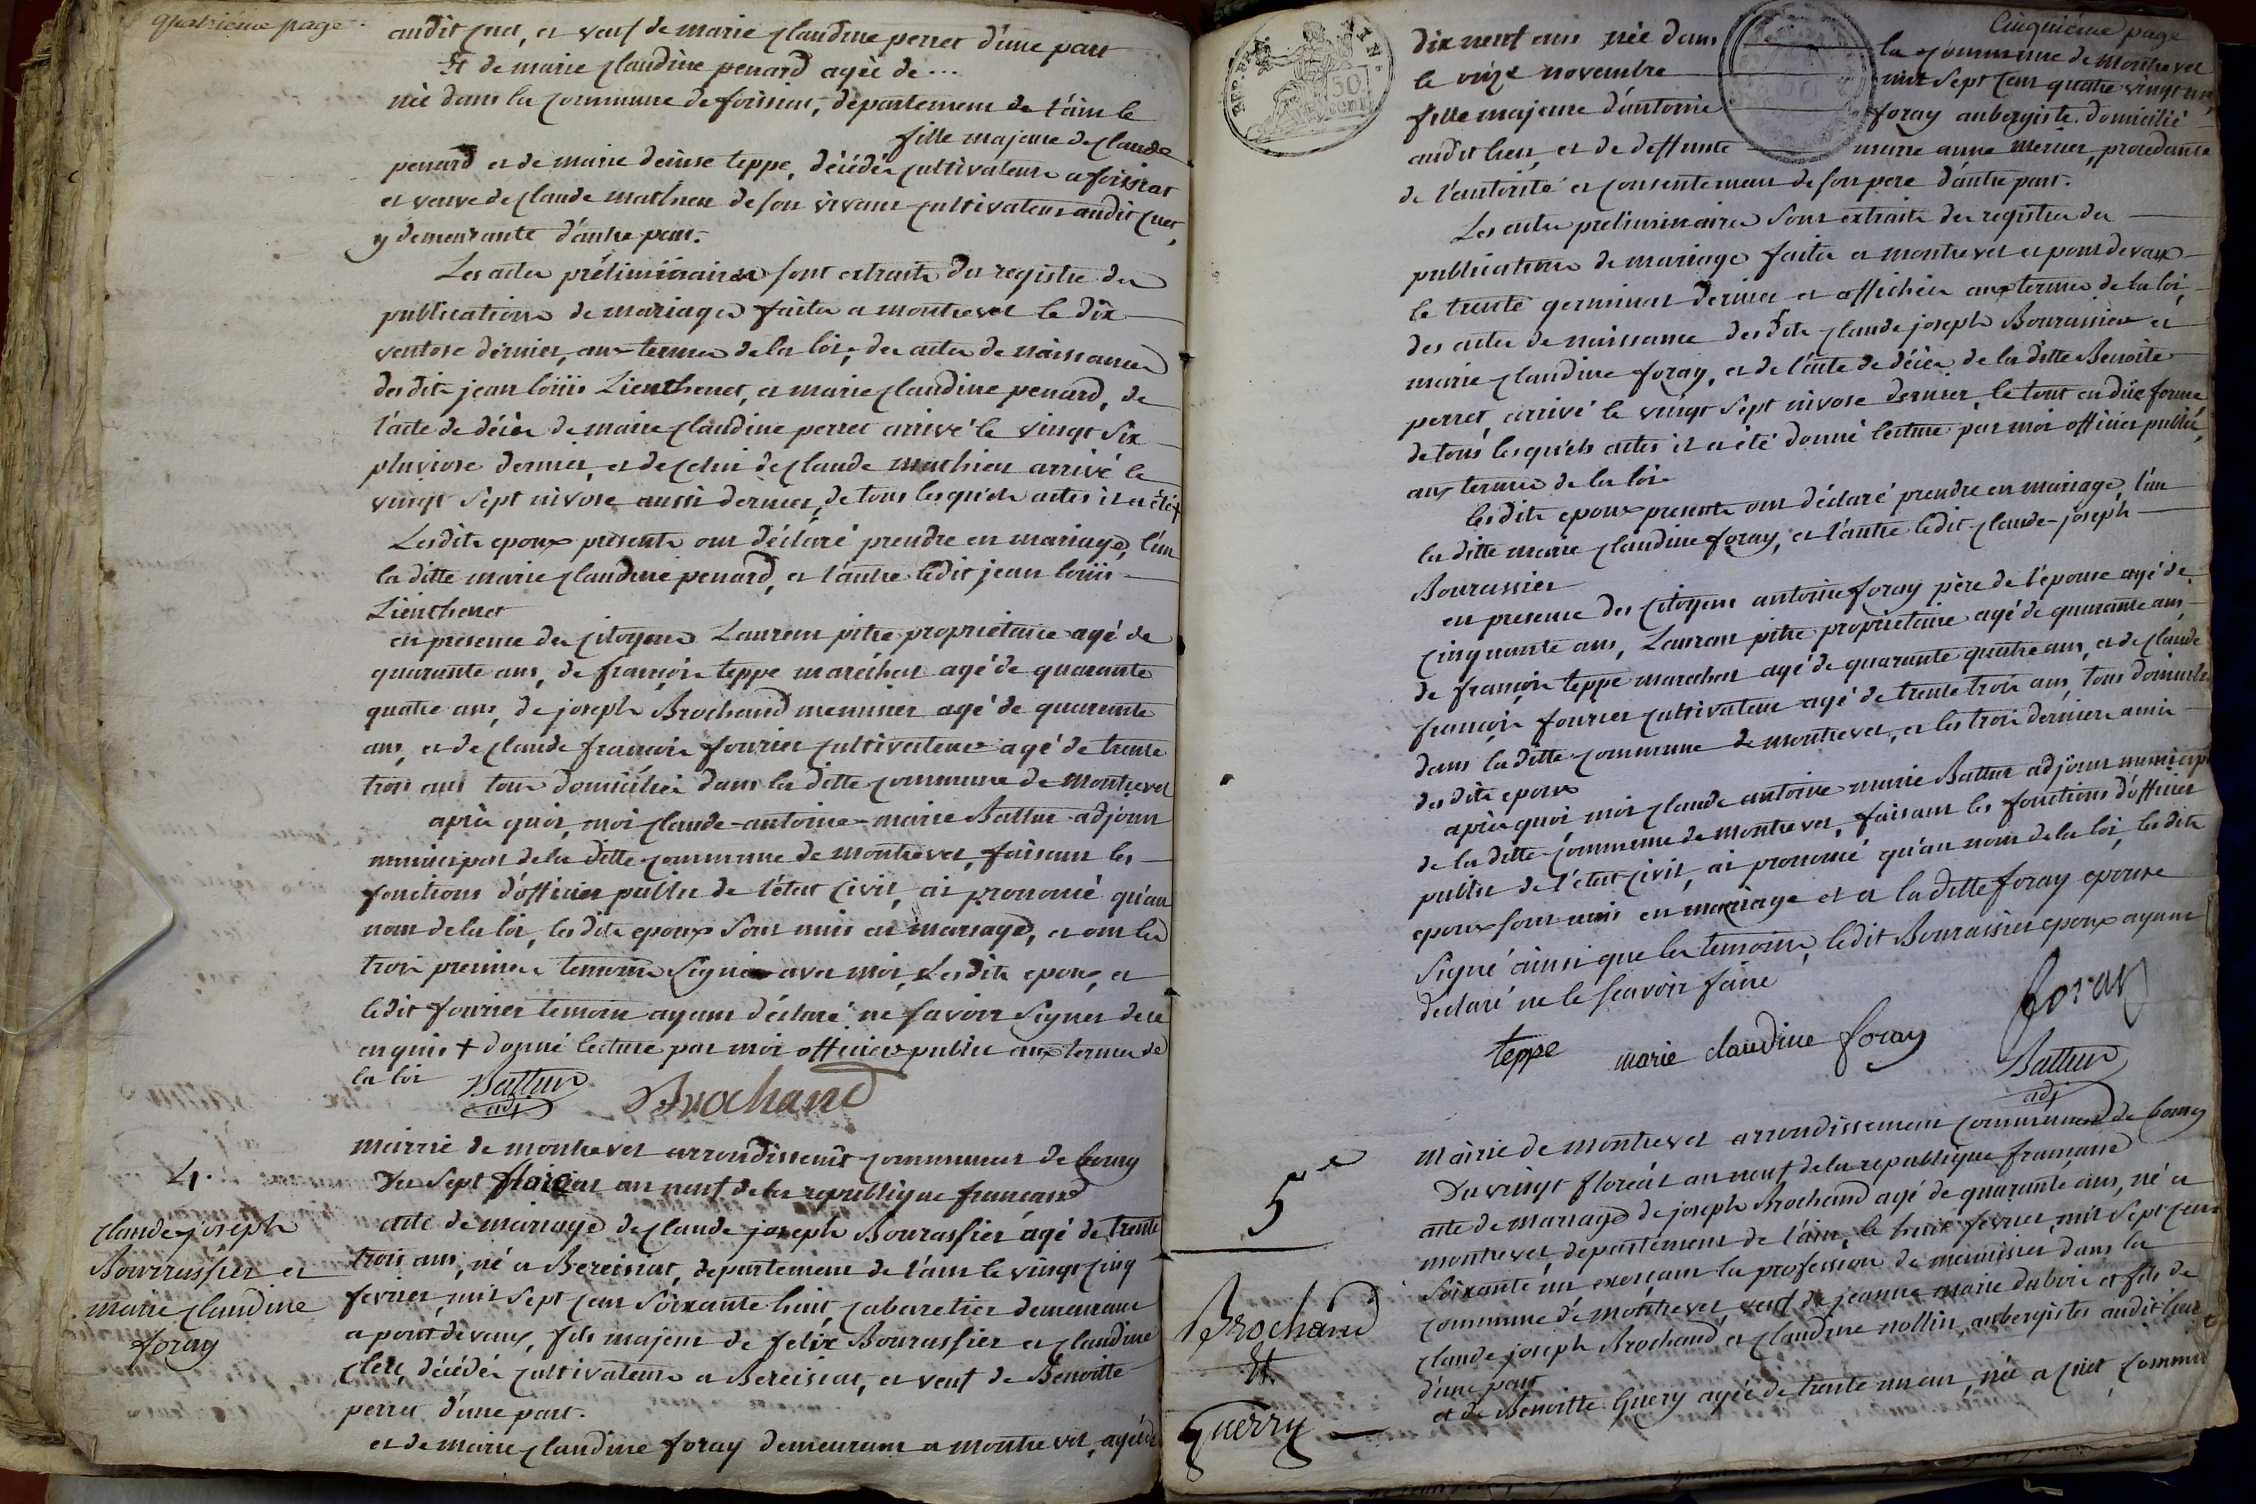 quatriéme page.
audit cuet, et veuf de marie claudine perret d'une part
Et de marie claudine penard agée de ...
née dans la commune de foissiat, département de l'ain le
fille majeure de claude
penard et de marie denise teppe, décédés cultivateurs a foissiat
et veuve de claude mathieu de son vivant cultivateur audit cuet,
y demeurante d'autre part.
Les actes préliminaires sont extraits du registre des
publications de mariages faites a montrevel le dix
ventose dernier, aux termes de la loi, des actes de naissances
desdits jean loüis Lienthenet, et marie claudine penard, de
l'acte de décés de marie claudine perret arrivé le vingt six
pluviose dernier, et de celui de claude mathieu arrivé le
vingt sept nivose aussi dernier, de tous lesquels actes il a été +
Lesdits epoux présents ont déclaré prendre en mariage, l'un
la ditte marie claudine penard, et l'autre ledit jean loüis
Lienthenet
en présence des citoyens Laurent pitre propriétaire agé de
quarante ans, de françois teppe maréchal agé de quarante
quatre ans, de joseph Brochand menuisier agé de quarante
ans, et de claude françois fourier cultivateur agé de trente
trois ans tous domiciliés dans la ditte commune de Montrevel
après quoi, moi claude-antoine-marie Battur adjoint
municipal de la ditte commune de montrevel, faisant les
fonctions d'officier public de l'état civil, ai prononcé qu'au
nom de la loi, lesdits epoux sont unis en mariage, et ont les
trois premiers temoins signé avec moi, Lesdits epoux, et
ledit fourier temoin ayant déclaré ne savoir signer de ce
enquis + donné lecture par moi officier public aux termes de
la loi Battur
adj
Brochand
4.
claude-joseph
Bourrassier et
marie claudine
foray
mairie de montrevel arrondissemt communal de bourg
Du sept floréal an neuf de la republique francaise
acte de mariage de claude joseph Bourassier agé de trente
trois ans, né a Bereisiat, departement de l'ain le vingt cinq
fevrier mil sept cent soixante huit, cabaretier demeurant
a pont de vaux, fils majeur de felix Bourassier et claudine
Clerc, décédés cultivateurs a Bereisiat, et veuf de Benoitte
perret d'une part.
et de marie claudine foray demeurant a montrevel, agée de
Cinquiéme page
dix neuf ans née dans la commune de montrevel
le onze novembre mil sept cent quatre vingt un,
fille majeure d'antoine foray aubergiste domicilié
audit lieu, et de deffunte marie anne mercier, procedante
de l'autorité et consentement de son pere d'autre part.
Les actes preliminaires sont extraits des registres des
publications de mariage faites a montrevel et pont de vaux
le trente germinal dernier et affichées aux termes de la loi,
des actes de naissance desdits claude joseph Bourassier et
marie claudine foray, et de l'acte de décés de la ditte Benoite
perret, arrivé le vingt sept nivose dernier, le tout en düe forme
de tous lesquels actes il a été donné lecture par moi officier public,
aux termes de la loi.
lesdits epoux presents ont déclaré prendre en mariage, l'un
la ditte marie claudine foray, et l'autre ledit claude-joseph
Bourassier
en presence des citoyens antoine foray père de l'épouse agé de
cinquante ans, Laurent pitre propriétaire agé de quarante ans,
de françois teppe marechal agé de quarante quatre ans, et de claude
françois fourier cultivateur agé de trente trois ans, tous domiciliés
dans la ditte commune de montrevel, et les trois derniers amis
desdits epoux
après quoi moi claude antoine marie Battur adjoint municipal
de la ditte commune de montrevel, faisant les fonctions d'officier
public de l'état civil, ai prononcé qu'au nom de la loi, lesdits
epoux sont unis en mariage et a la ditte foray epouse
signé ainsi que les temoins, ledit Bourassier epoux ayant
declaré ne le scavoir faire
teppe marie claudine foray foray
Battur
adj
5e
Brochand
Et
Guerry
mairie de montrevel arrondissement communal de bourg
Du vingt floréal an neuf de la republique francaise
acte de mariage de joseph Brochand agé de quarante ans, né a
montrevel, departement de l'ain, le huit fevrier mil sept cent
soixante un exerçant la profession de menuisier, dans la
commune de montrevel veuf de jeanne marie dubois et fils de
claude joseph Brochand et claudine nollin aubergistes audit lieu
d'une part
et de Benoitte Guery agée de trente un an, née a cuet, commune